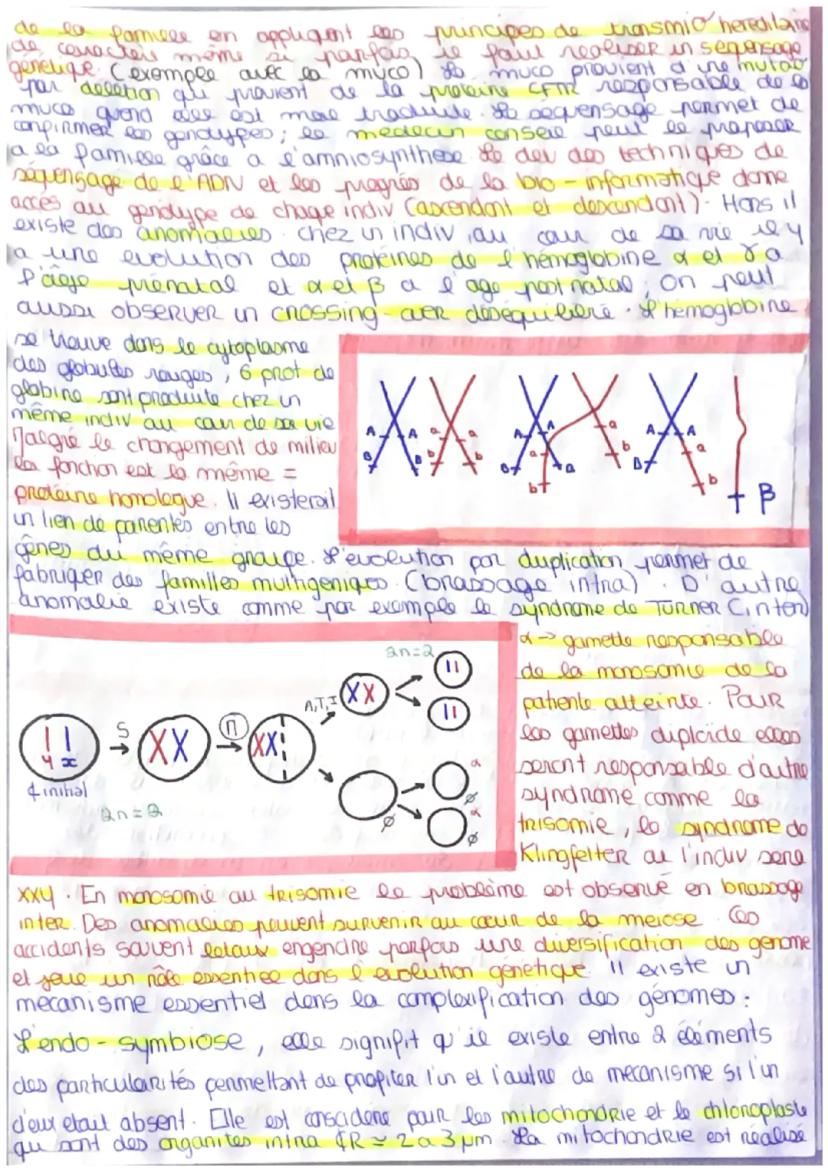 de la famille en appliquant les principes de transmio héréditaire
de caractères même si parfois il faut realiser un séquensage
génétique. (exemple avec la muco) La muco provient d'une mutato
par deletion qui provient de la proteine CFTR responsable de la
muco quand elle est mal traduite. Le séquensage permet de
confirmer les genotypes; le medecin conseil peut le proposer
a la famille grâce a l'amniosynthese. Le dev des techniques de
séquensage de l'ADN et les progrès de la bio-informatique donne
accès au génotype de chaque indiv (ascendant et descendant). Hors il
existe des anomalies. chez un indiv, au cour de sa vie il y
a une evolution des protéines de l'hémoglobine α et γ a
l'âge prénatal et α et β a l'age postnatal, On peut
aussi observer un crossing-over déséquilibré. L'hémoglobine
se trouve dans le cytoplasme
des globules rouges, 6 prot de
globine sont produite chez un
même indiv au cour de sa vie
Malgré le changement de milieu
la fonction est la même =
protéine homologue. Il existerait
un lien de parentés entre les
A A a a A A a A A a
B B b b B a b B b
b β
gênes du même groupe. L'évolution par duplication permet de
fabriquer des familles multigéniques. (brassage intra). D'autre
anomalie existe comme par exemple le syndrome de TURNER (inter)
α → gamette responsable
de la monosomie de la
patiente atteinte. Pour
les gamettes diploïde elles
seront responsable d'autre
syndrome comme la
trisomie, le syndrome de
Klingfelter ou l'indiv sera
2n=2
A,T,I
S
y x
¢ initial
2n=2
α
ø
α
ø ø
xxy. En monosomie ou trisomie le problème est observé en brassage
inter. Des anomalies peuvent survenir au cœur de la meiose. Ces
accidents souvent letaux engendre parfois une diversification des génome
et joue un rôle essentiel dans l'évolution génétique. Il existe un
mécanisme essentiel dans la complexification des génomes:
L'endo-symbiose, elle signifit qu'il existe entre 2 éléments
des particularités permettant de profiter l'un et l'autre de mecanisme si l'un
d'eux etait absent. Elle est considéré pour les mitochondrie et le chloroplaste
qui sont des organites intra ¢R ≃ 2 a 3 µm. La mitochondrie est réalisé